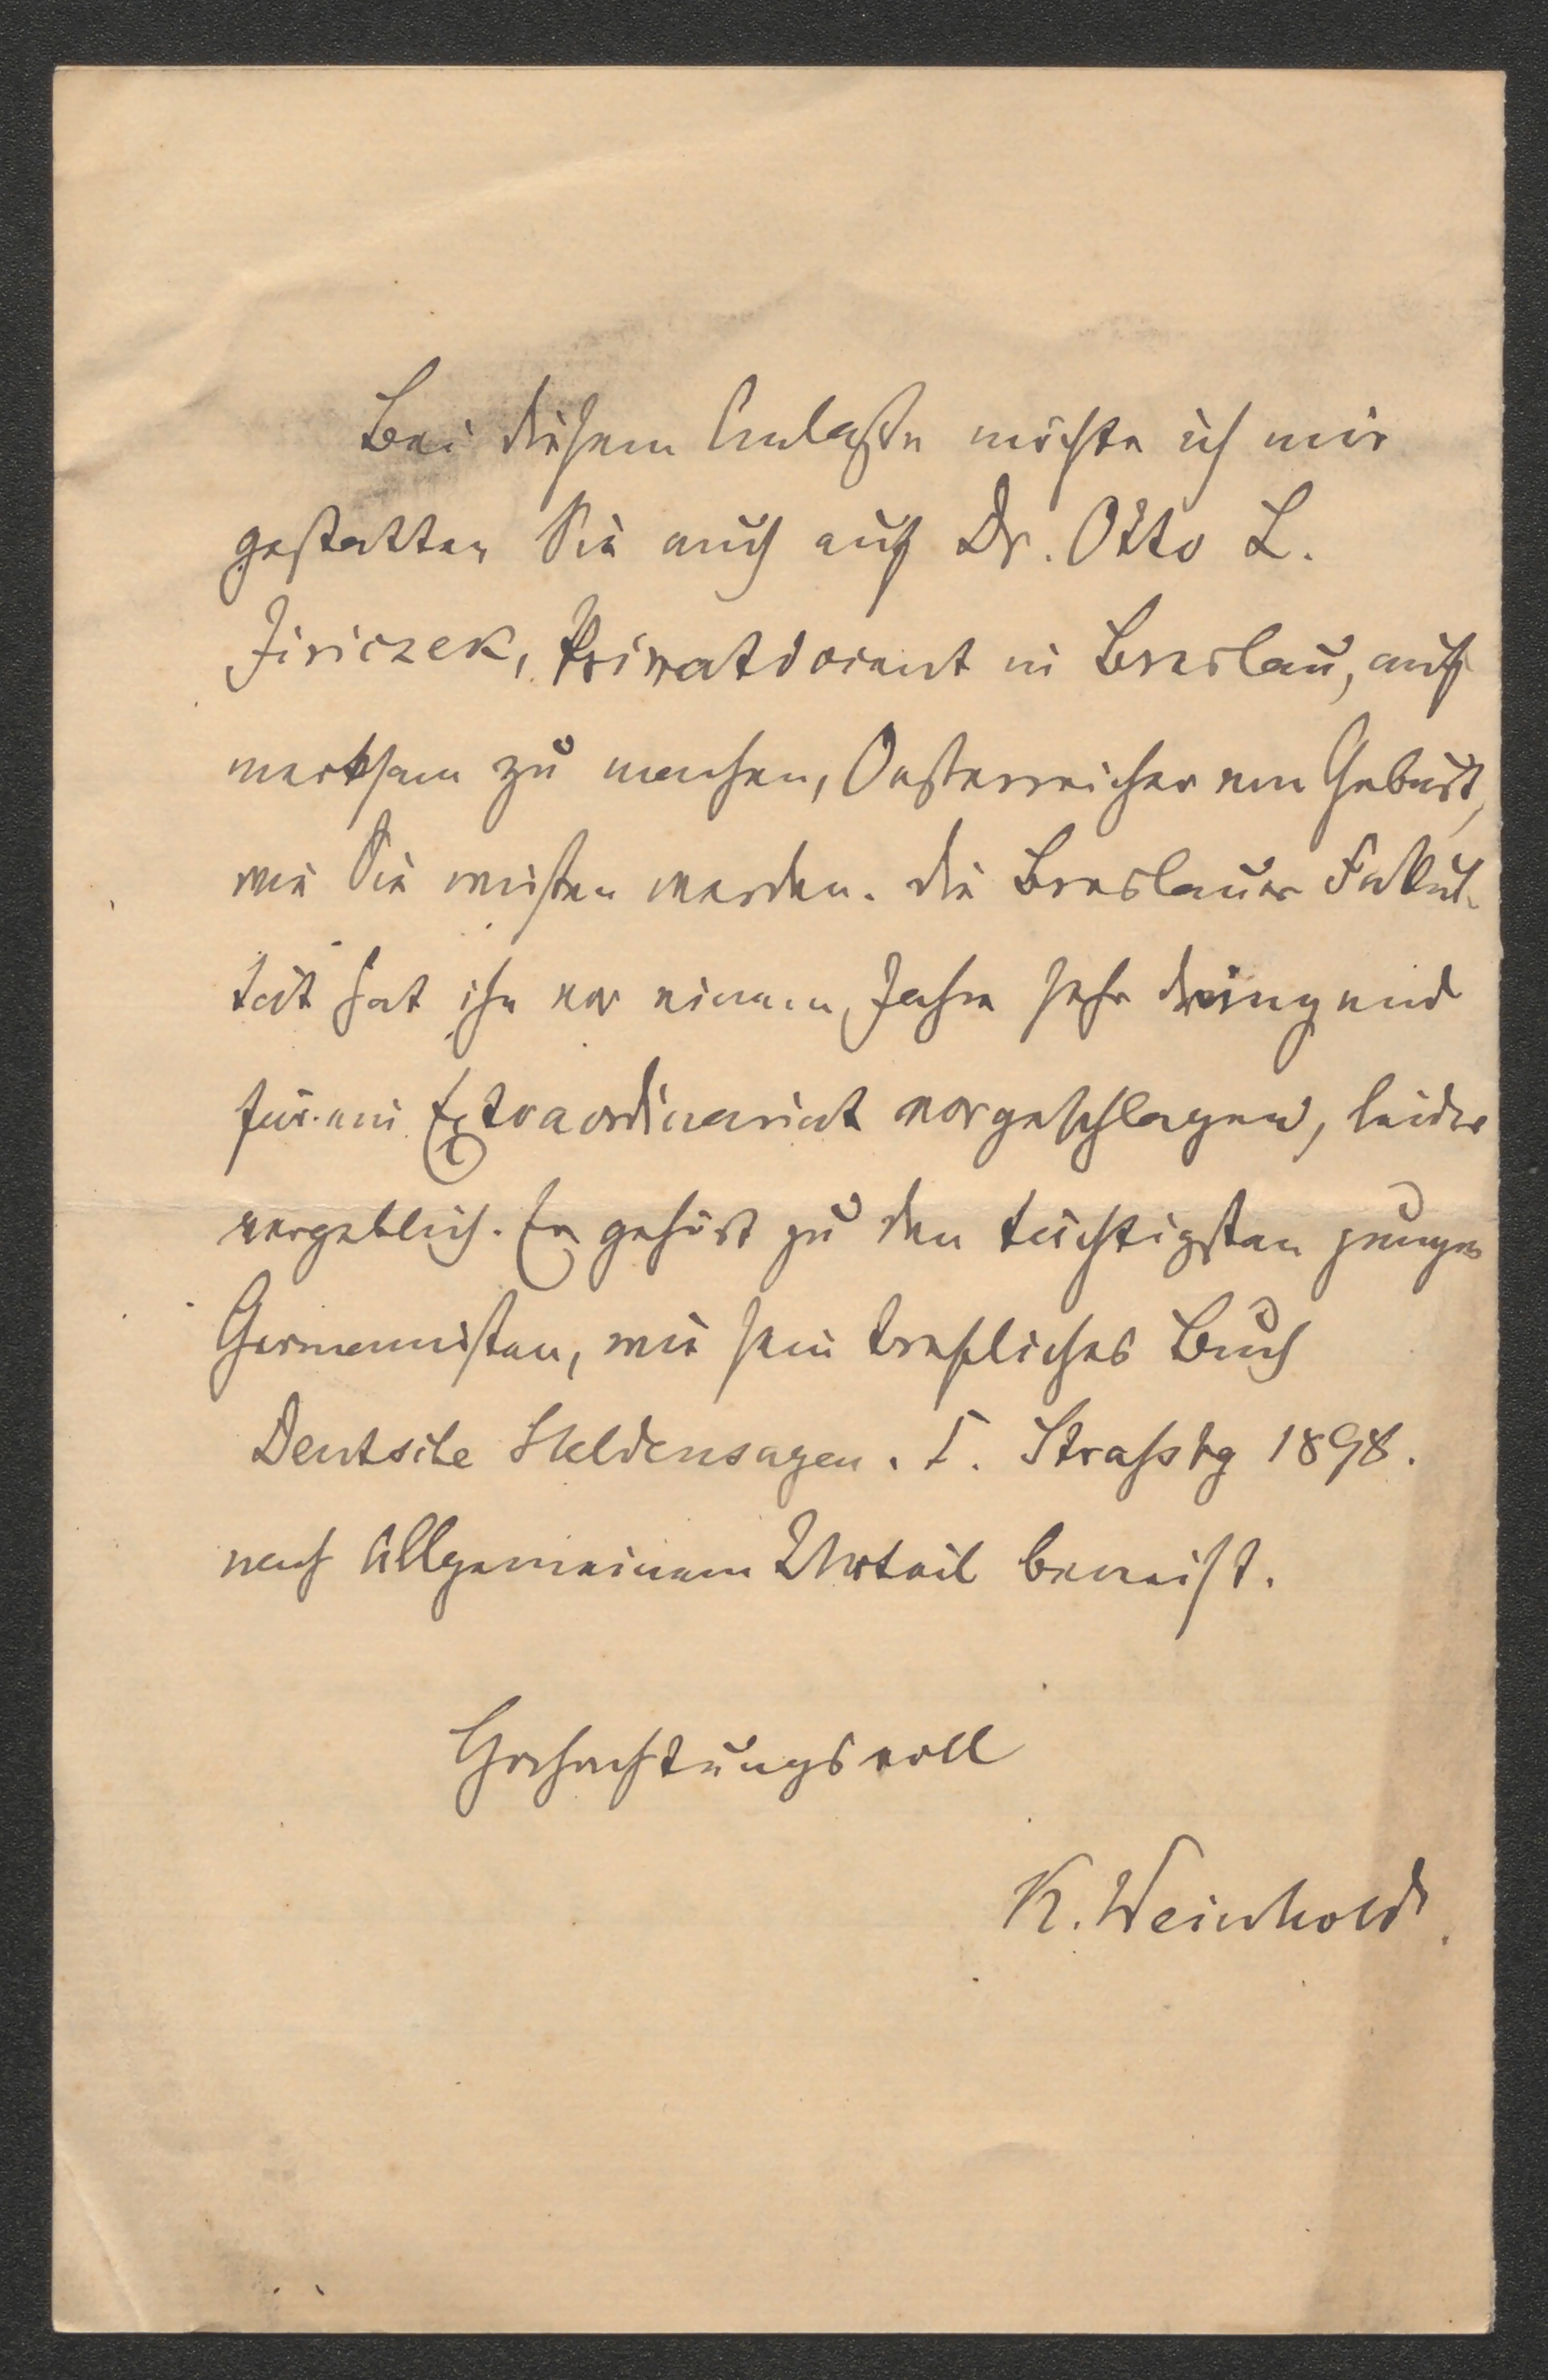 Bei diesem Anlaße möchte ich mir
gestatten Sie auch auf Dr. Otto L.
Jiriczek, Privatdocent in Breslau, auf
merksam zu machen, Oesterreicher von Geburt,
wie Sie wissen werden. Die Breslauer Fakul-
tät hat ihn vor einem Jahre sehr dringend
für ein Extraordinariat vorgeschlagen, leider
vergeblich. Er gehört zu den tüchtigsten jungen
Germanisten, wie sein trefliches Buch
Deutsche Heldensagen. I. Straßbg 1898.
nach allgemeinem Urteil beweist.
Hochachtungsvoll
K. Weinhold.